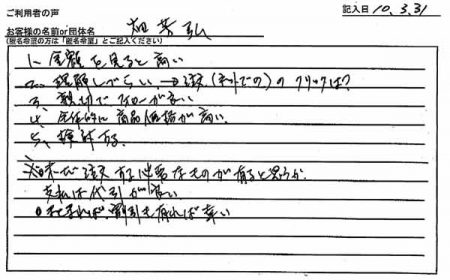 ご利用者の声
記入日 10.3.31
お客様の名前or団体名 畑 芳弘
(匿名希望の方は「匿名希望」とご記入ください)
1、金額を見ると高い
2、理解しづらい→注文(ネットでの)のクリックは?
3、親切でフォローが良い
4、全体的に商品価格が高い
5、検討する
※日本で注文する必要なものが有ると思うが
支払は代引が良い
出来れば、割引も有れば幸い